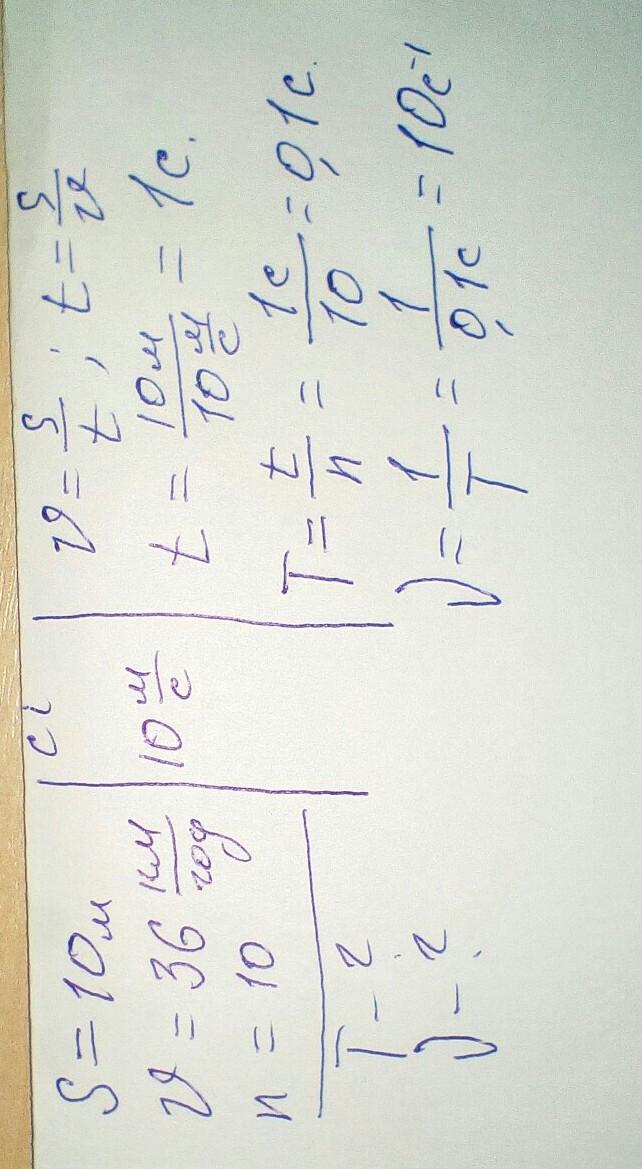 S = 10 м
υ = 36 км/год
n = 10
T - ?
ν - ?
Сі
10 м/с
υ = S/t ; t = S/υ
t = 10 м / 10 м/с = 1 с.
T = t/n = 1с/10 = 0,1 с.
ν = 1/T = 1/0,1с = 10 с⁻¹